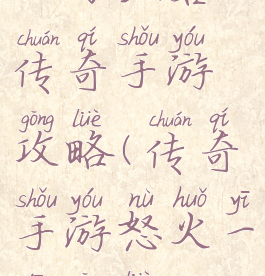 chuán qí shǒu yóu
传奇手游
gōng lüè chuán qí
攻略(传奇
shǒu yóu nù huǒ yī
手游怒火一